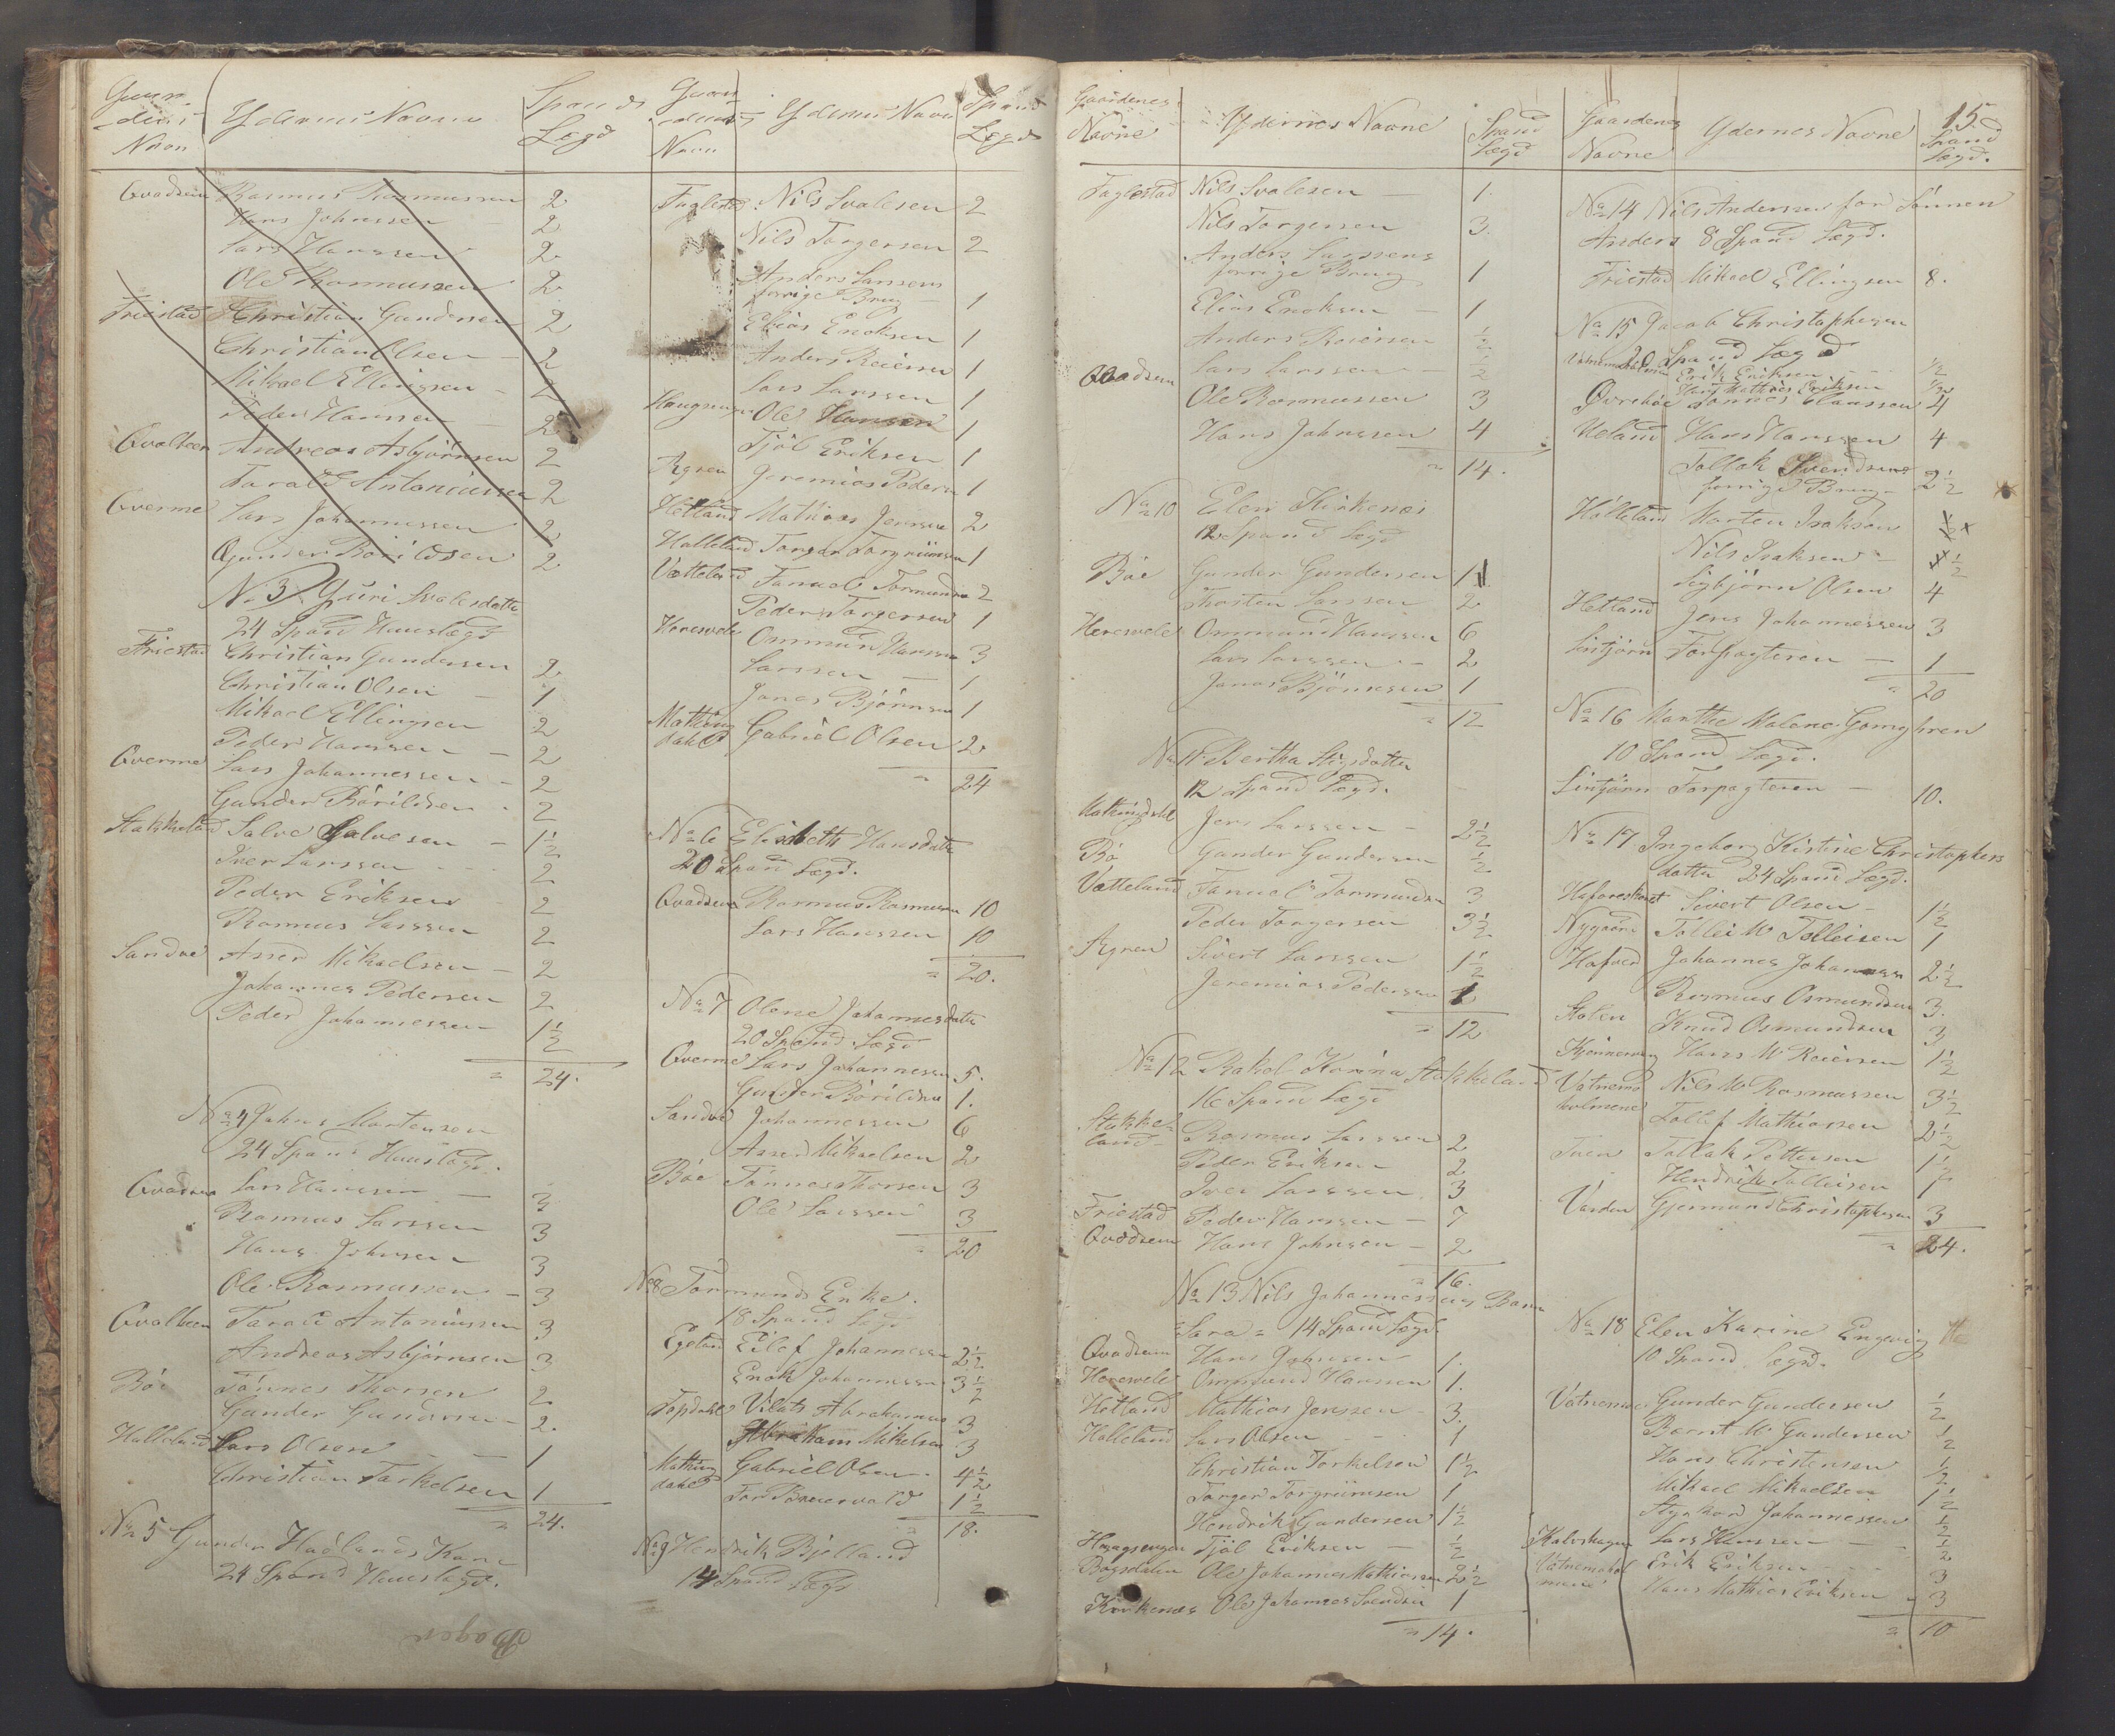 Navn
Ydernes Navne
Spand
Lægd
Qvadsem Rasmus Rasmussen 2
Hans Johnssen 2
Lars Hanssen 2
Ole Rasmussen 2
Friestad Christian Gundersen 2
Christian Olsen 2
Mikael Ellingsen 2
Peder Hanssen 2
Qvalbeen Andreas Asbjörnsen 2
Tarald Antoniussen 2
Qverme Lars Johannessen 2
Gunder Börildsen 2
No 3 Guri Svalesdatter
24 Spand Huuslægd
Friestad Christian Gundersen 2
Christian Olsen 1
Mikael Ellingsen 2
Peder Hanssen 2
Qverme Lars Johannessen 2
Gunder Börildsen 2
Stakkeland Salve Salvesen 1 1/2
Iver Larssen 2
Peder Eriksen 2
Rasmus Larssen 2
Sandve Asser Mikaelsen 2
Johannes Pedersen 2
Peder Johannessen 1 1/2
" 24.
No 4 Jahns Mortensen
24 Spand Huuslægd.
Qvadsem Lars Hanssen 3
Rasmus Larssen 3
Hans Johnsen 3
Ole Rasmussen 3
Qvalbeen Tarald Antoniussen 3
Andreas Asbjörnsen 3
Böe Tönnes Thorsen 2
Gunder Gundersen 2.
Halleland Lars Olsen 1
Christian Torkelsen 1
" 24.
No 5 Gunder Haölands Kone
24 Spand Huuslægd.
Navn
Ydernes Navn
Spand
Lægd
Fuglestad Nils Svalesen 2
Nils Torgersen 2
Anders Larsens
forrige Brug 1
Elias Enoksen 1
Anders Reiersen 1
Lars Larssen 1
Haugsengen Ole Hansen 1
Tjöl Eriksen 1
Ægren Jeremias Pedersen 1
Hetland Mathias Jenssen 2
Halleland Torger Torgriimsen 1
Vatteland Tanuel Tormundsen 2
Peder Torgersen 1
Herevele Ommund Hanssen 3
Larssen 1
Jonas Björnsen 1
Mathing
dahl Gabriel Olsen 2
" 24
No 6 Elisabeth Hansdatter
20 Spand Lægd.
Qvadsem Rasmus Rasmussen 10
Lars Hanssen 10
" 20.
No 7 Olene Johannesdatter
20 Spand Lægd
Qverme Lars Johannesen 5.
Gunder Börildsen 1.
Sandve Johannessen 6
Asser Mikaelsen 2
Böe Tönnes Thorsen 3
Ole Larssen 3
" 20
No 8 Tormunds Enke.
18 Spand Lægd
Egeland Eilef Johannessen 2 1/2
Enok Johannessen 3 1/2
Topdahl Vilats Abrahamsen 3
Abraham Mikelsen 3
Mathing
dahl Gabriel Olsen 4 1/2
1 1/2
" 18.
No 9 Hendrik Bjelland
14 Spand Lægd
Gaardenes
Navne
Ydernes Navne
Spand
Lægd
Fuglestad Nils Svalesen 1.
Nils Torgersen 3.
Anders Larssens
forrige Brug 1
Elias Enoksen 1
Anders Reiersen 1/2
Lars Larssen 1/2
Qvadsem Ole Rasmussen 3
Hans Johnssen 4
" 14.
No 10 Elen Kirkenes
12 Spand Lægd
Böe Gunder Gundersen 1
Thosten Larssen 2
Herevele Ommund Hanssen 6
Lars Larssen 2
Jonas Björnssen 1
" 12
No 11 Bertha Stigsdatter
12 Spand Lægd.
Mathingdahl Jens Larssen 2 1/2
Bö Gunder Gundersen 1/2
Vatteland Tanuel Tormundsen 3
Peder Torgersen 3 1/2
Ægren Sivert Larssen 1 1/2
Jeremias Pedersen 1
" 12
No 12 Rakel Karina Stakkeland
16 Spand Lægd
Stakke-
land Rasmus Larssen 2
Peder Eriksen 2
Iver Larssen 3
Friestad Peder Hanssen 7
Qvadsem Hans Johnsen 2
" 16.
No 13 Nils Johannesens Barn
Sara = 14 Spand Lægd.
Qvadsem Hans Johnssen 1.
Herevele Ommund Hanssen 1.
Hetland Mathias Jenssen 3.
Halleland Lars Olsen 1
Christian Torkelsen 1 1/2
Torger Torgriimsen 1
Hendrik Gundersen 1 1/2
Haugsengen Tjöl Eriksen 1/2
Bögsdalen Ole Johannes Mathiassen 2 1/2
Kirkenes Ole Johannes Svendsen 1
" 14.
15.
Gaardenes
Navne
Ydernes Navne
Spand
Lægd.
No 14 Nils Anderssen for Sönnen
Anders 8 Spand Lægd.
Friestad Mikael Ellingsen 8.
No 15 Jacob Christophersen
20 Spand Lægd
Erik Eriksen 1/2
Hans Mathias Eriksen 1/2
Övreböe Tönnes Claussen 4
Ueland Hans Hanssen 4
Tollak Svendsens
forrige Brug 2 1/2
Hölleland Morten Isaksen
Nils Isaksen 1/2
Sigbjörn Olsen 4
Hetland Jens Johannessen 3
Sintjörn Forpagteren 1
" 20
No 16 Marthe Malene
10 Spand Lægd.
Sintjörn Forpagteren 10.
No 17 Ingeborg Kistine Christophers
datter 24 Spand Lægd.
Sivert Olsen 1 1/2
Nygaard Tollei M Tolleisen 1
Hafved Johannes Johannessen 2 1/2
Rasmus Osmundsen 3.
Stölen Knud Osmundsen 3
Hans M Reiersen 1 1/2
Vatnema
holmene Nils M Rasmussen 3 1/2
Tollef Mathiassen 2 1/2
Tuen Tollak Pettersen 1 1/2
Hendrik Tolleisen 1
Varden Gjermund Christophersen 3
" 24.
No 18 Elen Karine Engevig
10 Spand Lægd.
Gunder Gundersen 1/2
Bernt M Gundersen 1/2
Hans Christensen 1/2
Mikael Mikaelsen 1 1/2
Styrkar Johannessen 1/2
Kalvshagen Lars Hanssen 1/2
Vatnemahol
mene Erik Eriksen 3
Hans Mathias Eriksen 3
" 10